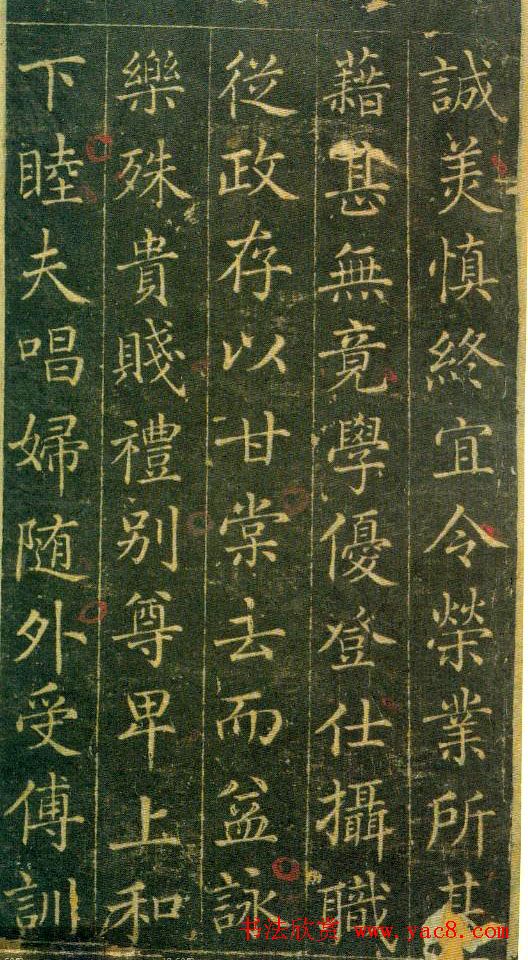 誠美慎終宜令榮業所基
藉甚無竟學優登仕攝職
從政存以甘棠去而益詠
樂殊貴賤禮別尊卑上和
下睦夫唱婦随外受傅訓
书法欣赏 www.yac8.com